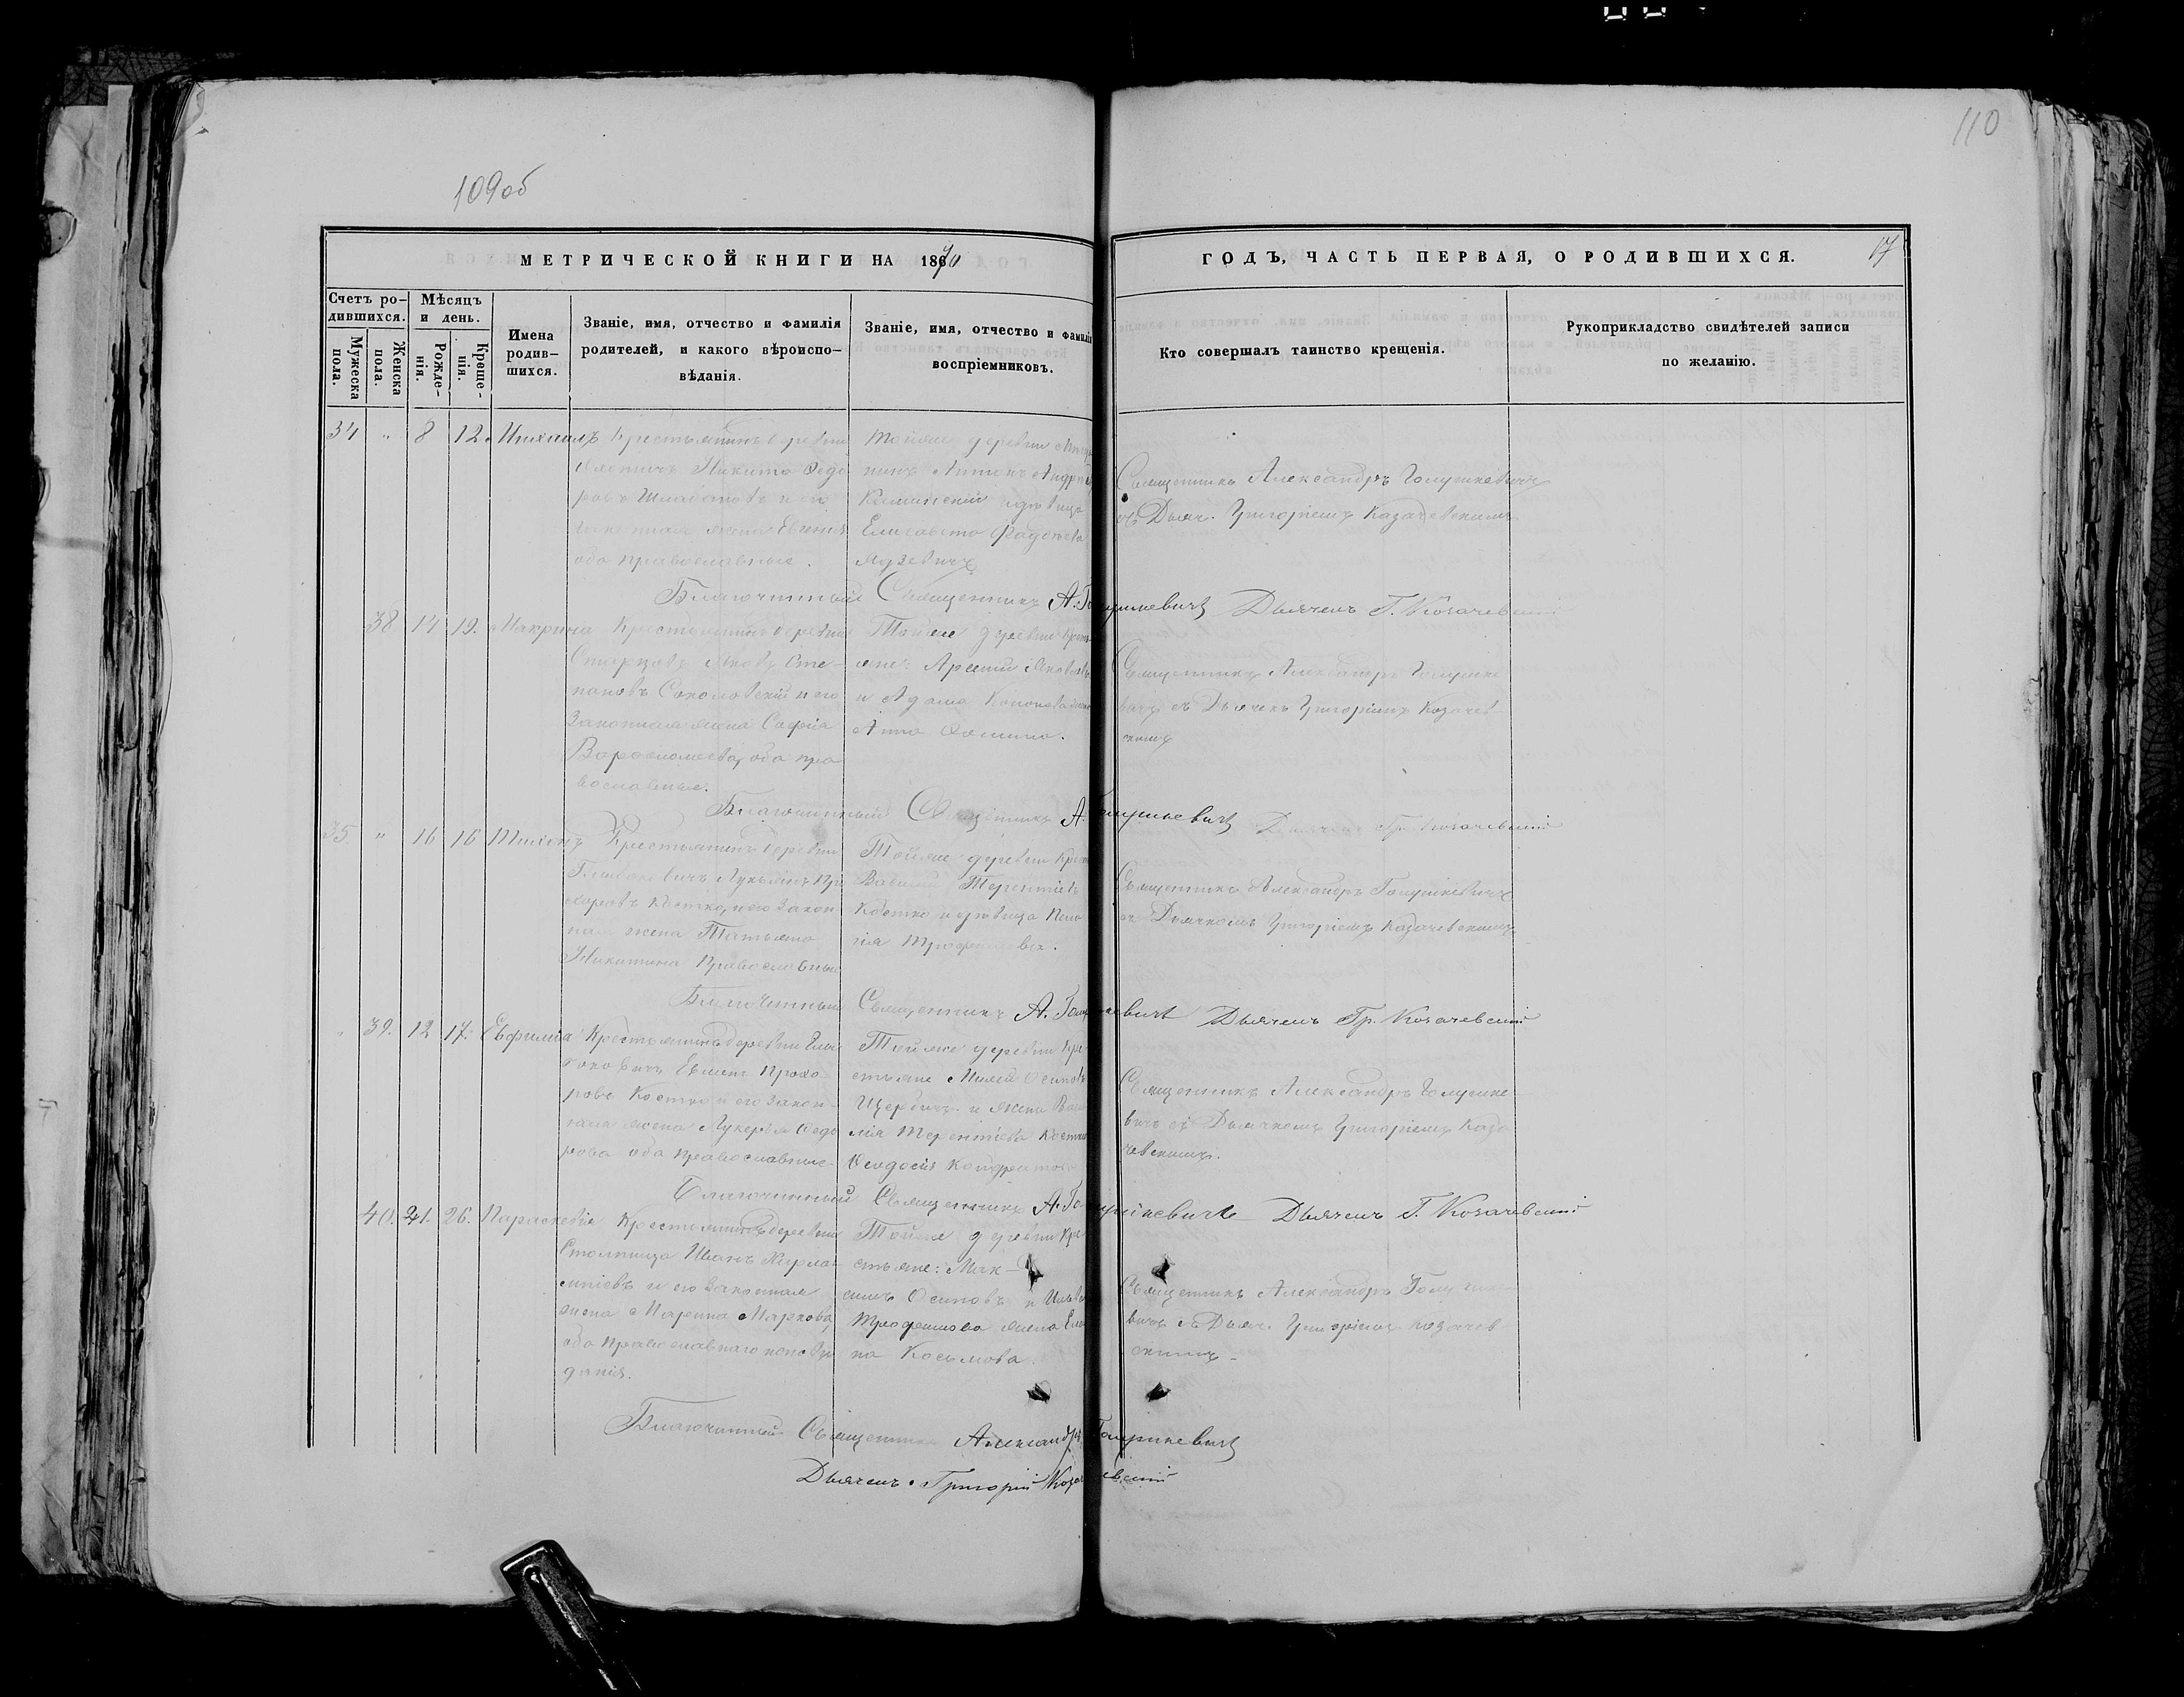 109 об
110
МЕТРИЧЕСКОЙ КНИГИ НА 1870
ГОДЪ, ЧАСТЬ ПЕРВАЯ, О РОДИВШИХСЯ.
17
Счетъ ро-
дившихся.
Мужеска
пола.
Женска
пола.
Мѣсяцъ
и день.
Рожде-
нія.
Креще-
нія.
Имена
родив-
шихся.
Званіе, имя, отчество и фамилія
родителей, и какого вѣроиспо-
вѣданія.
Званіе, имя, отчество и фамилія
воспріемниковъ.
Кто совершалъ таинство крещенія.
Рукоприкладство свидѣтелей записи
по желанію.
34 " 8 12. Михаилъ
Крестьянинъ деревни
Никита Ѳедо
ровъ и его
законная жена Евгенія
оба православные.
Тойже деревни
Антонъ Андре
Каминскій и дѣвица
Елисавета Фадѣева
Священникъ Александръ Голушкевичъ
съ Дьяч. Григоріемъ Казачевскимъ
Благочинный Священникъ А. Голушкевичъ Дьячекъ Г. Козачевскій
38 14 19. Макрина
Крестьянинъ деревни
Яковъ Сте-
пановъ Соколовскій и его
Законная жена Софія
Варѳоломеева, оба пра
вославные.
Тойже деревни Кресть
яне: Арсеній Яковлевъ
и Адама Кононова жена
Анна Ѳомина.
Священникъ Александръ Голушке
вичъ съ Дьячекъ Григоріемъ Козачев
скимъ
Благочинный Священникъ А. Голушкевичъ Дьячекъ Гр. Козачевскій
35. " 16 16 Тихонъ
Крестьянинъ деревни
Лукьянъ Про
хоровъ Костко, и его закон
ная жена Татьяна
Никитина Православные
Тойже деревни Крест
Василій Терентіевъ
Костко и дѣвица Пела
гія Трофимова.
Священникъ Александръ Голушкевичъ
съ Дьячкомъ Григоріемъ Казачевскимъ
Благочинный Священникъ А. Голушкевичъ Дьячекъ Гр. Козачевскій
" 39. 12 17. Евфимія
Крестьянинъ деревни
Евменъ Прохо-
ровъ Костко и его закон-
ная жена Лукерья Ѳедо
рова оба православные
Тойже деревни Кре
стьяне Осиповъ
и жена
Терентіева Костко
Ѳеодосія Кондратова
Священникъ Александръ Голушке
вичъ съ Дьячкомъ Григоріемъ Каза
чевскимъ.
Благочинный Священникъ А. Голушкевичъ Дьячекъ Г. Козачевскій
40. 21. 26. Параскевія
Крестьянинъ деревни
Иванъ
и его законная
жена Марина Маркова,
оба Православнаго исповѣ
данія.
Тойже деревни Кре
стьяне: Мак-
симъ Осиповъ и
Трофимова жена Еле
на Косьмова.
Священникъ Александръ Голушке
вичъ съ Дьяч. Григоріемъ Козачев
скимъ
Благочинный Священникъ Александръ Голушкевичъ
Дьячекъ Григорій Козачевскій